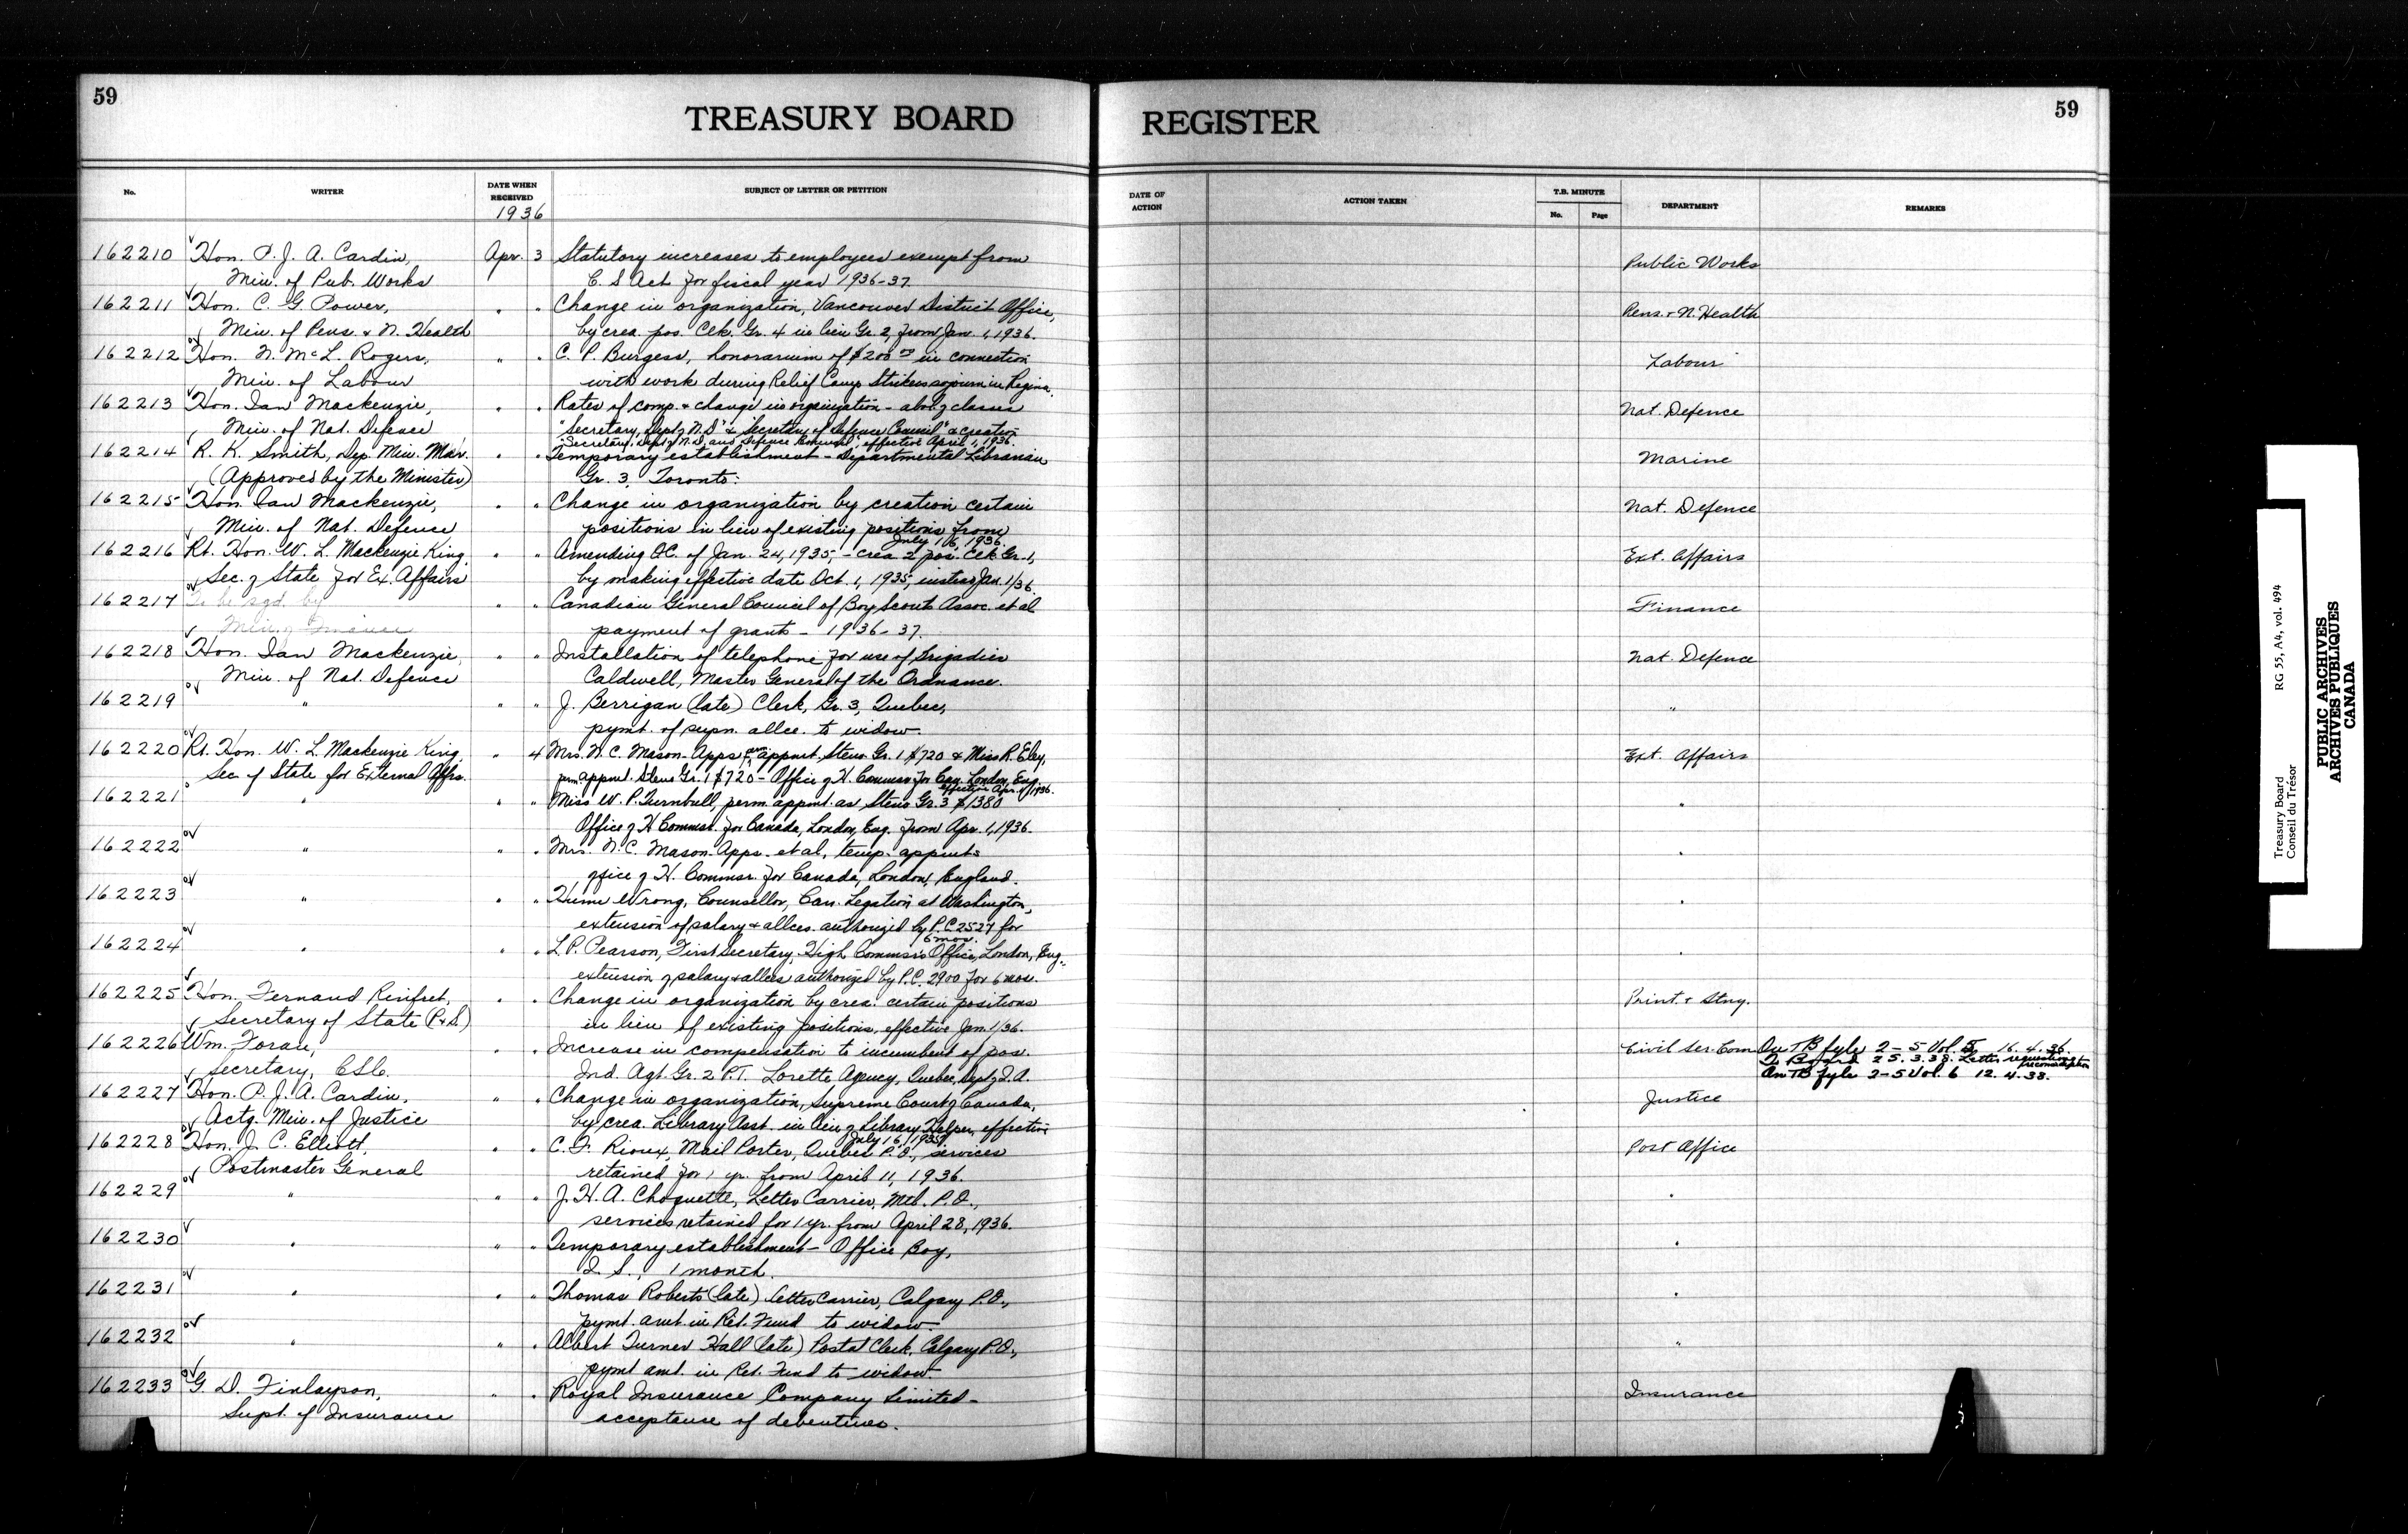 59
TREASURY BOARD REGISTER
59
No. WRITER DATE WHEN RECEIVED SUBJECT OF LETTER OR PETITION DATE OF ACTION ACTION TAKEN T.B. MINUTE No. Page DEPARTMENT REMARKS
1936
162210 Hon. P. J. A. Cardin, Apr. 3 Statutory increases to employees exempt from Public Works
Min. of Pub. Works C. S Act for fiscal year 1936-37.
162211 Hon. C. G. Power, " " Change in organization, Vancouver District Office, Pens. & N. Health
Min. of Pens. & N. Health by crea. pos. Clk. Gr. 4 in lieu Gr. 2, from Jan. 1, 1936.
162212 Hon. N. McL. Rogers, " " C. P. Burgess, honorarium of $200 00 in connection Labour
Min. of Labour with work during Relief Camp Strikers sojourn in Regina.
162213 Hon. Ian Mackenzie, " " Rates of comp. & change in organization - abol. of classes Nat. Defence
Min. of Nat. Defence "Secretary, Dept of N.D" & "Secretary of Defence Council" & creation
"Secretary, Dept of N.D. and Defence Council", effective April 1, 1936.
162214 R. K. Smith, Dep. Min. Mar. " " Temporary establishment - Departmental Librarian Marine
(Approved by the Minister) Gr. 3, Toronto.
162215 Hon. Ian Mackenzie, " " Change in organization by creation certain Nat. Defence
Min. of Nat. Defence positions in lieu of existing positions from
July 16, 1936.
162216 Rt. Hon. W. L. Mackenzie King, " " Amending O.C. of Jan. 24, 1935, - crea 2 pos. Clk Gr. 1, Ext. Affairs
Sec. of State for Ex. Affairs by making effective date Oct. 1, 1935, instead Jan. 1/36.
162217 To be sgd. by " " Canadian General Council of Boy Scouts Assoc. et al Finance
Min. of Finance payment of grants - 1936-37.
162218 Hon. Ian Mackenzie, " " Installation of telephone for use of Brigadier Nat. Defence
Min. of Nat. Defence Caldwell, Master General of the Ordnance.
162219 " " " J. Berrigan (late) Clerk, Gr. 3, Quebec, "
pymt. of supn. allce. to widow.
162220 Rt. Hon. W. L. Mackenzie King, " 4 Mrs. N. C. Mason-Apps perm appmt. Steno Gr. 1 $720 & Miss R. Eley, Ext. Affairs
Sec of State for External Affrs. perm. appmt. Steno Gr. 1 $720 - Office of H. Commsr for Can. London, Eng.
effective Apr. 1/1936.
162221 " " " Miss W. P. Turnbull, perm. appmt. as Steno Gr. 3 $1380 "
Office of H Commsr. for Canada, London, Eng. from Apr. 1, 1936.
162222 " " " Mrs. N. C. Mason-Apps. et al, temp. appmts "
office of H. Commsr. for Canada, London, England.
162223 " " " Hume Wrong, Counsellor, Can. Legation at Washington, "
extension of salary & allces. authorized by P.C 2527 for
6 mos.
162224 " " " L P. Pearson, First Secretary, High Commsr's Office, London, Eng., "
extension of salary & allces authorized by P.C. 2900 for 6 mos.
162225 Hon. Fernand Rinfret, " " Change in organization by crea. certain positions Print. & Stny.
Secretary of State (P & S.) in lieu of existing positions, effective Jan. 1/36.
162226 Wm. Foran, " " Increase in compensation to incumbent of pos. Civil Ser. Com On TB fyle 2-5 Vol. 5 16. 4. 36.
Secretary, C.S.C. Ind. Agt. Gr. 2 P.T. Lorette Agency, Quebec, Dept of I. A. To Board 25. 3. 38. Letter requesting reconsideration
On TB fyle 2-5 Vol. 6 12. 4. 38.
162227 Hon. P. J. A. Cardin, " " Change in organization, Supreme Court of Canada, Justice
Actg. Min. of Justice by crea. Library Asst. in lieu of Library Helper, effective
July 16, 1935.
162228 Hon. J. C. Elliott, " " C. F. Rioux, Mail Porter, Quebec P.O., services Post Office
Postmaster General retained for 1 yr. from April 11, 1936.
162229 " " " J. H. A. Choquette, Letter Carrier, Mtl. P.O., "
services retained for 1 yr. from April 28, 1936.
162230 " " " Temporary establishment - Office Boy, "
I. S., 1 month.
162231 " " " Thomas Roberts (late) Letter Carrier, Calgary P.O., "
pymt. amt. in Ret. Fund to widow.
162232 " " " Albert Turner Hall (late) Postal Clerk, Calgary P.O., "
pymt amt. in Ret. Fund to widow
162233 G. D. Finlayson, " " Royal Insurance Company Limited - Insurance
Supt. of Insurance acceptance of debentures.
Treasury Board RG 55, A4, vol. 494
Conseil du Trésor
PUBLIC ARCHIVES
ARCHIVES PUBLIQUES
CANADA